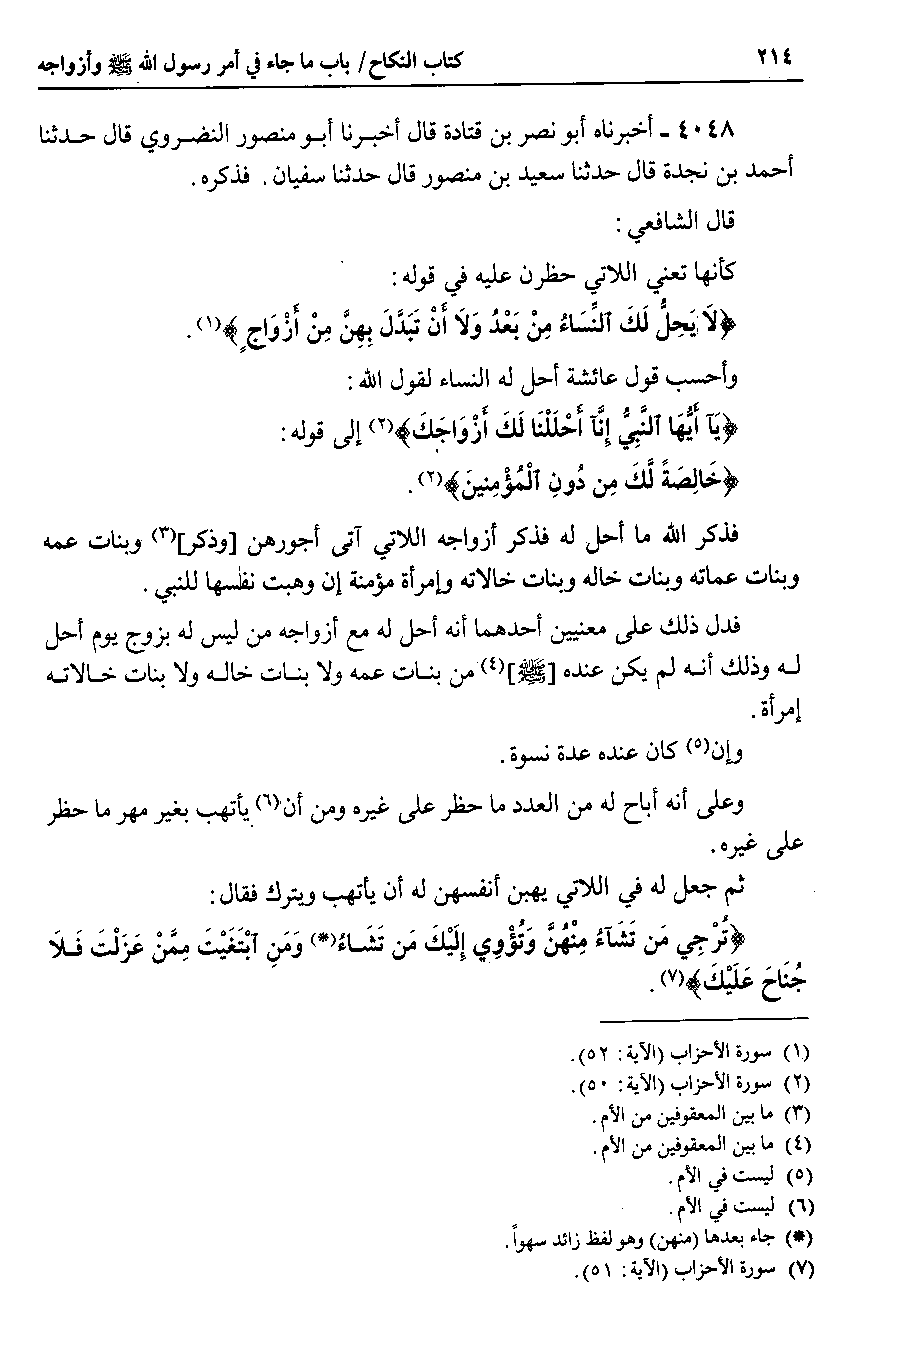 ٢١٤ كتاب النكاح/ باب ما جاء في أمر رسول الله ﷺ وأزواجه
٤٠٤٨ ـ أخبرناه أبو نصر بن قتادة قال أخبرنا أبو منصور النضروي قال حدثنا
أحمد بن نجدة قال حدثنا سعيد بن منصور قال حدثنا سفيان . فذكره .
قال الشافعي :
كأنها تعني اللاتي حظرن عليه في قوله :
﴿لَا يَحِلُّ لَكَ ٱلنِّسَاءُ مِنْ بَعْدُ وَلَا أَنْ تَبَدَّلَ بِهِنَّ مِنْ أَزْوَاجٍ﴾(١) .
وأحسب قول عائشة أحل له النساء لقول الله :
﴿يَآ أَيُّهَا ٱلنَّبِيُّ إِنَّآ أَحْلَلْنَا لَكَ أَزْوَاجَكَ﴾(٢) إلى قوله :
﴿خَالِصَةً لَّكَ مِن دُونِ ٱلْمُؤْمِنِينَ﴾(٢) .
فذكر الله ما أحل له فذكر أزواجه اللاتي آتى أجورهن [وذكر](٣) وبنات عمه
وبنات عماته وبنات خاله وبنات خالاته وإمرأة مؤمنة إن وهبت نفسها للنبي .
فدل ذلك على معنيين أحدهما أنه أحل له مع أزواجه من ليس له بزوج يوم أحل
له وذلك أنه لم يكن عنده [ﷺ](٤) من بنات عمه ولا بنات خاله ولا بنات خالاته
إمرأة .
وإن(٥) كان عنده عدة نسوة .
وعلى أنه أباح له من العدد ما حظر على غيره ومن أن(٦) يأتهب بغير مهر ما حظر
على غيره .
ثم جعل له في اللاتي يهبن أنفسهن له أن يأتهب ويترك فقال :
﴿تُرْجِي مَن تَشَآءُ مِنْهُنَّ وَتُؤْوِي إِلَيْكَ مَن تَشَاءُ(*) وَمَنِ ٱبْتَغَيْتَ مِمَّنْ عَزَلْتَ فَلَا
جُنَاحَ عَلَيْكَ﴾(٧) .
(١) سورة الأحزاب (الآية : ٥٢).
(٢) سورة الأحزاب (الآية : ٥٠).
(٣) ما بين المعقوفين من الأم.
(٤) ما بين المعقوفين من الأم.
(٥) ليست في الأم.
(٦) ليست في الأم.
(*) جاء بعدها (منهن) وهو لفظ زائد سهواً.
(٧) سورة الأحزاب (الآية : ٥١).